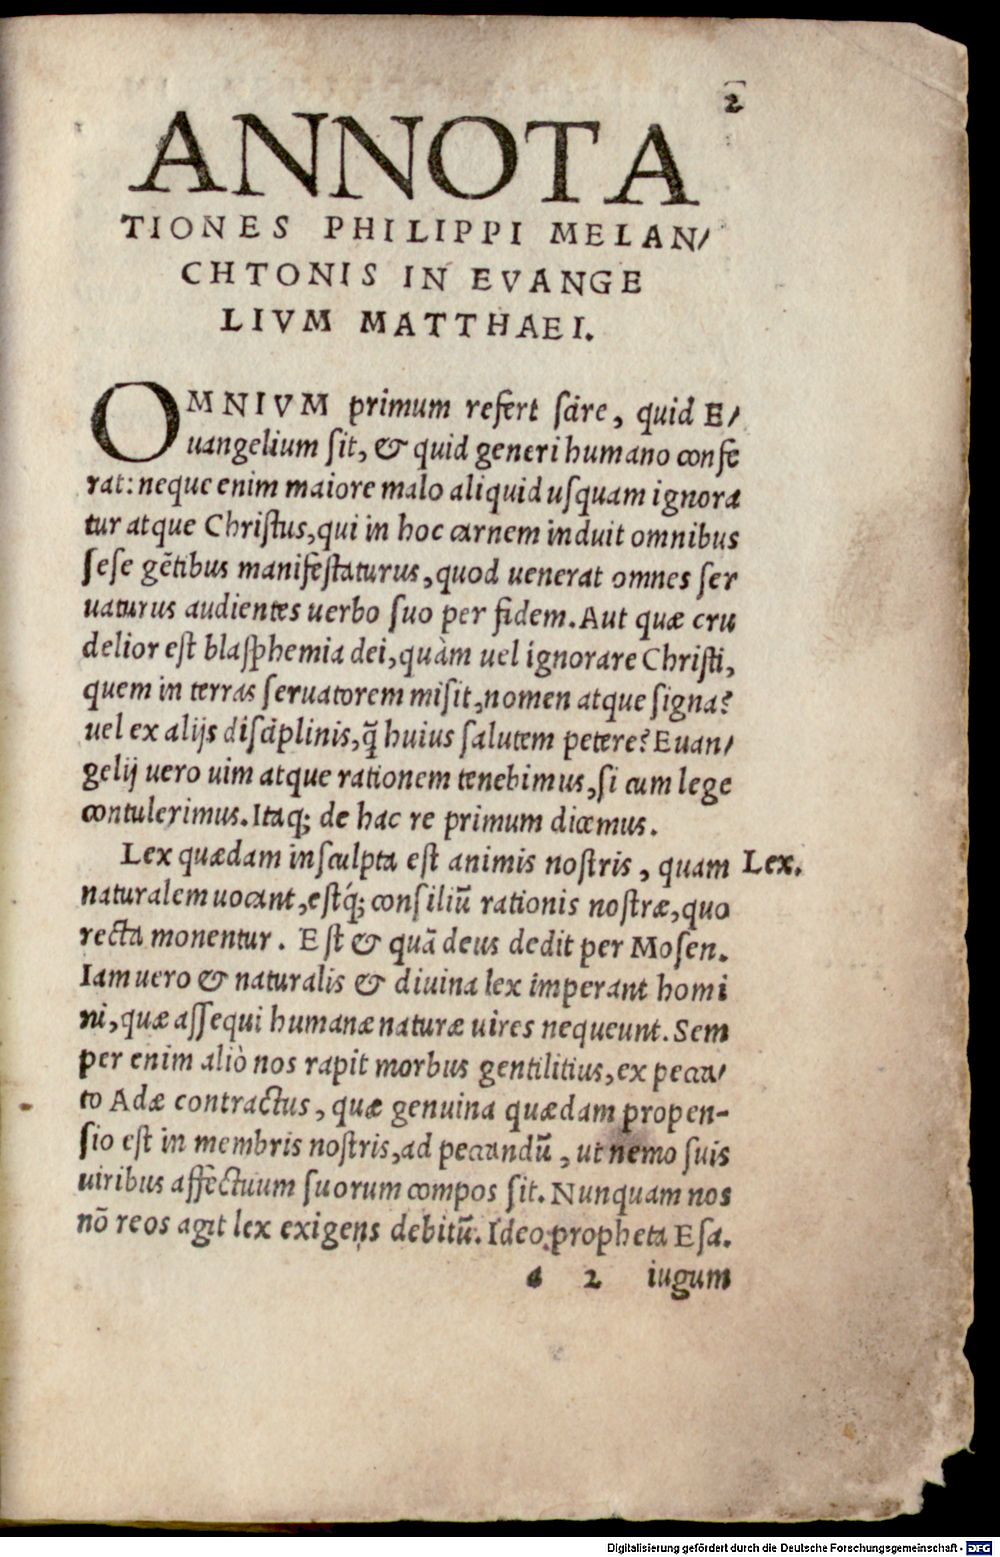 2
ANNOTA
TIONES PHILIPPI MELAN/
CHTONIS IN EVANGE
LIVM MATTHAEI.
OMNIVM primum refert scire, quid E/
uangelium sit, & quid generi humano confe
rat: neque enim maiore malo aliquid usquam ignora
tur atque Christus, qui in hoc carnem induit omnibus
sese gẽtibus manifestaturus, quod uenerat omnes ser
uaturus audientes uerbo suo per fidem. Aut quæ cru
delior est blasphemia dei, quàm uel ignorare Christi,
quem in terras seruatorem misit, nomen atque signa?
uel ex alijs disciplinis, q̃ huius salutem petere? Euan/
gelij uero uim atque rationem tenebimus, si cum lege
contulerimus. Itaq; de hac re primum dicemus.
Lex quædam insculpta est animis nostris, quam Lex.
naturalem uocant, estq́; consiliũ rationis nostræ, quo
recta monentur. Est & quã deus dedit per Mosen.
Iam uero & naturalis & diuina lex imperant homi
ni, quæ assequi humanæ naturæ uires nequeunt. Sem
per enim aliò nos rapit morbus gentilitius, ex pecca/
to Adæ contractus, quæ genuina quædam propen-
sio est in membris nostris, ad peccandũ, ut nemo suis
uiribus affectuum suorum compos sit. Nunquam nos
nõ reos agit lex exigens debitũ. Ideo propheta Esa.
a 2 iugum
Digitalisierung gefördert durch die Deutsche Forschungsgemeinschaft - DFG